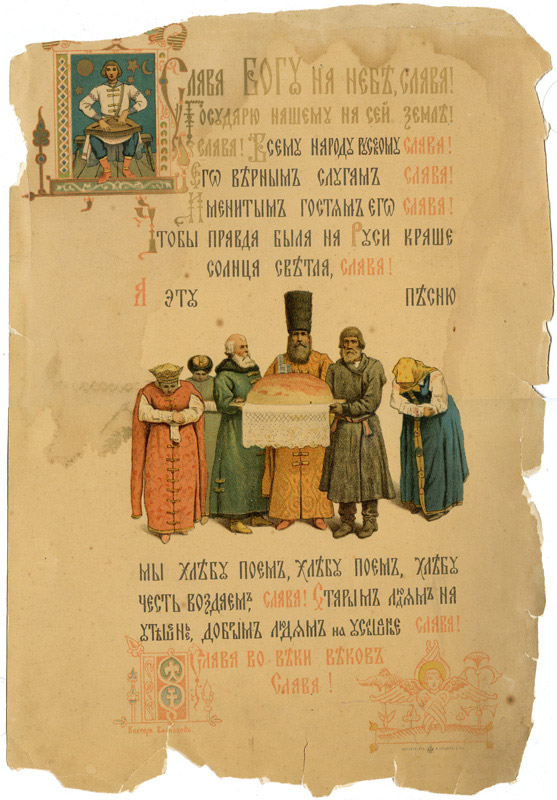 Слава БОГꙋ на небѣ, слава!
Государю нашему на сей землѣ!
Слава! Всему народу рускому слава!
Его вѣрнымъ слугамъ слава!
Именитымъ гостямъ его слава!
Чтобы правда была на Руси краше
солнца свѣтла, слава!
А эту пѣсню
мы хлѣбу поемъ, хлѣбу поемъ, хлѣбу
честь воздаемъ, слава! Старымъ людямъ на
утѣшенье, добрымъ людямъ на услышанье слава!
Слава во вѣки вѣковъ
Слава!